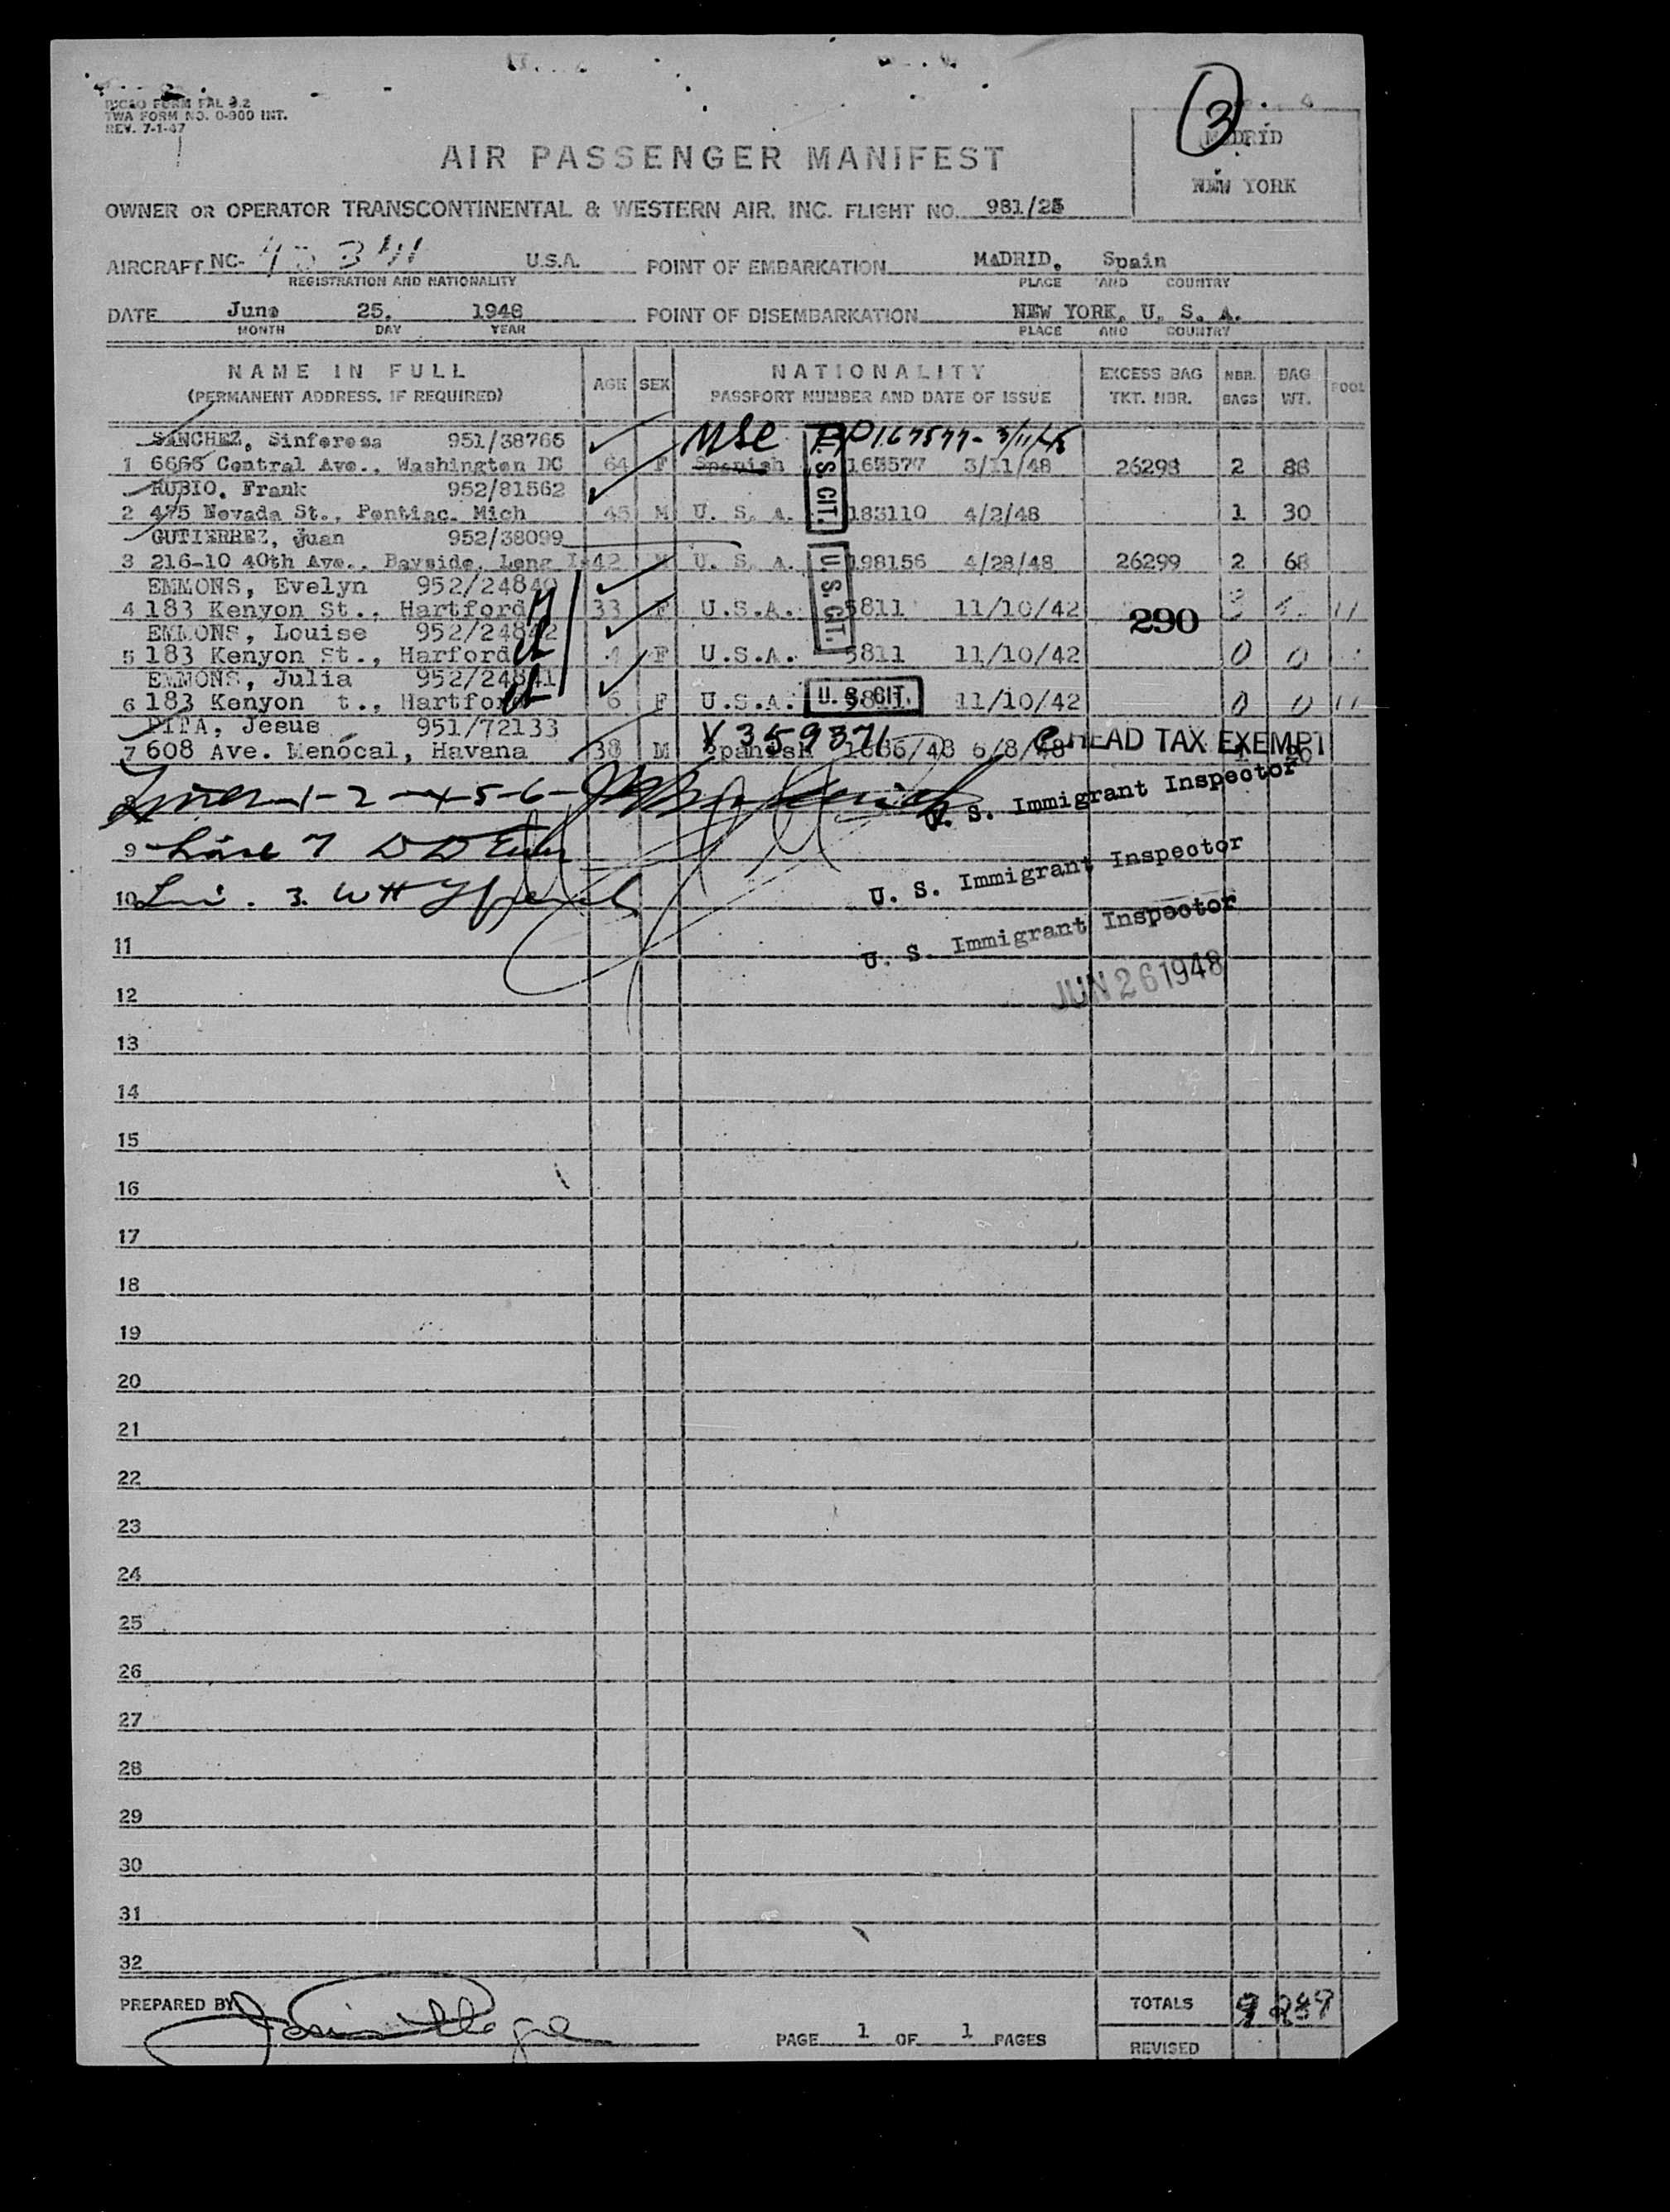 ICAO FORM FAL 3.2
TWA FORM NO. 0-900 INT.
REV. 7-1-47
3
MADRID
NEW YORK
AIR PASSENGER MANIFEST
OWNER OR OPERATOR TRANSCONTINENTAL & WESTERN AIR, INC. FLIGHT NO. 981/25
AIRCRAFT NC- U.S.A. POINT OF EMBARKATION MADRID, Spain
REGISTRATION AND NATIONALITY PLACE AND COUNTRY
DATE June 25. 1948 POINT OF DISEMBARKATION NEW YORK, U. S. A.
MONTH DAY YEAR PLACE AND COUNTRY
NAME IN FULL AGE SEX NATIONALITY EXCESS BAG NBR. BAG POOL
(PERMANENT ADDRESS, IF REQUIRED) PASSPORT NUMBER AND DATE OF ISSUE TKT. NBR. BAGS WT.
SANCHEZ, Sinferosa 951/38766
1 6666 Central Ave., Washington DC 64 F Spanish 3/11/48 26298 2 88
RUBIO, Frank 952/81562
2 475 Nevada St., Pontiac. Mich 45 M U. S. A. 183110 4/2/48 1 30
GUTIERREZ, Juan 952/38099
3 216-10 40th Ave., Bayside, Long 42 M U. S. A. 198156 4/28/48 26299 2 68
EMMONS, Evelyn 952/24840
4 183 Kenyon St., Hartford 33 F U.S.A. 5811 11/10/42 290
EMMONS, Louise 952/24842
5 183 Kenyon St., Harford 4 F U.S.A. 5811 11/10/42 0 0
EMMONS, Julia 952/24841
6 183 Kenyon t., Hartford 6 F U.S.A. 5811 11/10/42 0 0
PITA, Jesus 951/72133 V 359371
7 608 Ave. Menocal, Havana 38 M Spanish 1686/48 6/8/48
U. S. CIT.
U. S. CIT.
U. S. CIT.
HEAD TAX EXEMPT
8 1-2-4-5-6-
U. S. Immigrant Inspector
9 Line 7
U. S. Immigrant Inspector
10 3. WH
U. S. Immigrant Inspector
11
JUN 26 1948
12
13
14
15
16
17
18
19
20
21
22
23
24
25
26
27
28
29
30
31
32
PREPARED BY TOTALS 9 289
PAGE 1 OF 1 PAGES
REVISED